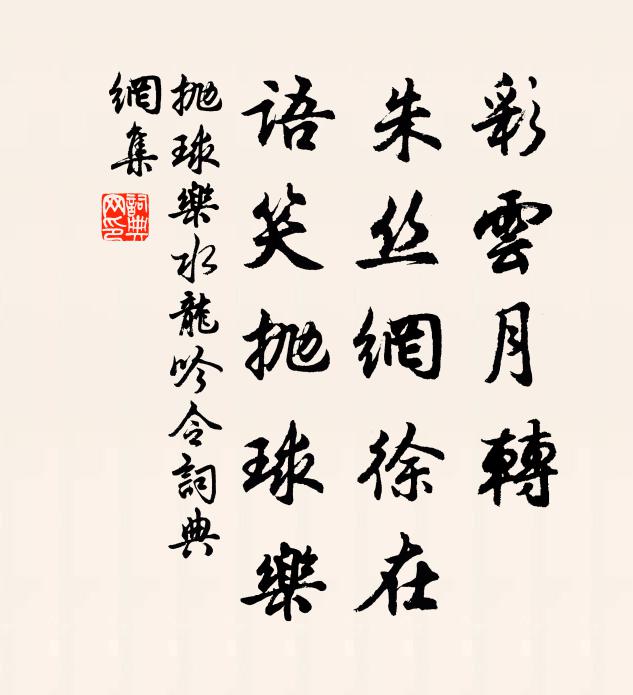 彩雲月轉
朱丝網徐在
語笑抛球樂
抛球樂水龍吟令詞典
網集
詞典
网印